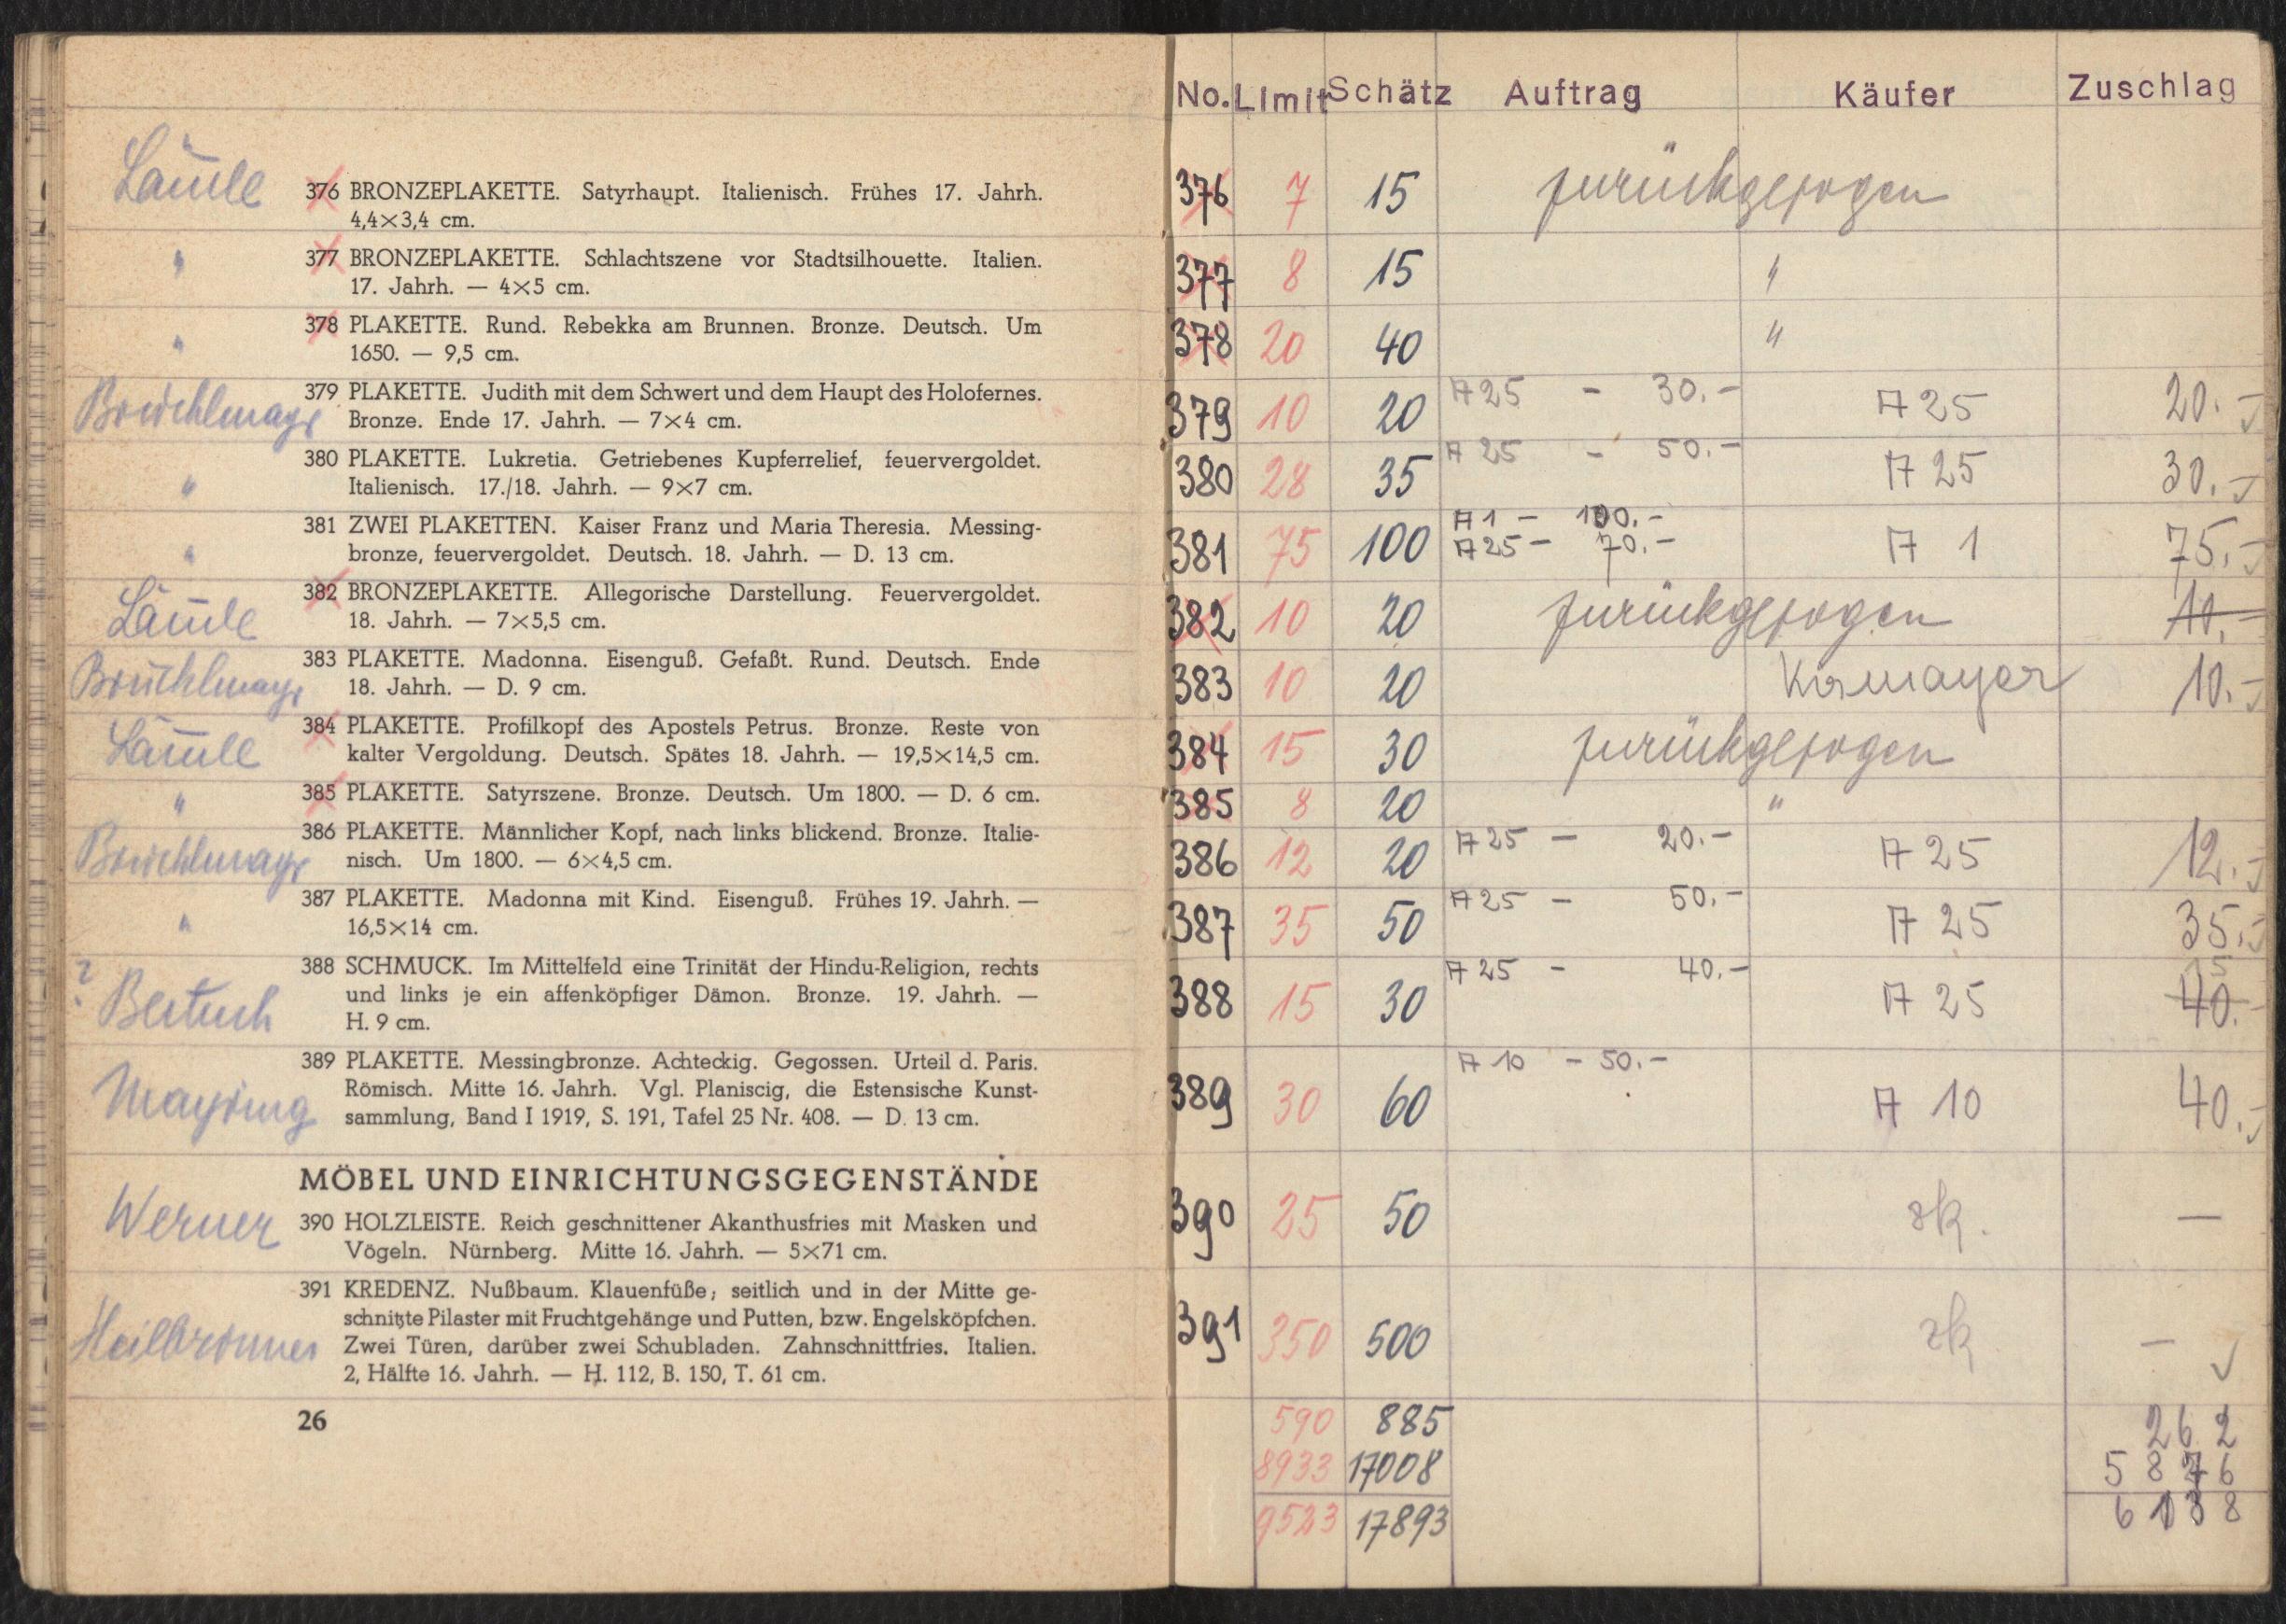 Läule
376 BRONZEPLAKETTE. Satyrhaupt. Italienisch. Frühes 17. Jahrh.
4,4×3,4 cm.
" 377 BRONZEPLAKETTE. Schlachtszene vor Stadtsilhouette. Italien.
17. Jahrh. — 4×5 cm.
" 378 PLAKETTE. Rund. Rebekka am Brunnen. Bronze. Deutsch. Um
1650. — 9,5 cm.
379 PLAKETTE. Judith mit dem Schwert und dem Haupt des Holofernes.
Bronze. Ende 17. Jahrh. — 7×4 cm.
" 380 PLAKETTE. Lukretia. Getriebenes Kupferrelief, feuervergoldet.
Italienisch. 17./18. Jahrh. — 9×7 cm.
" 381 ZWEI PLAKETTEN. Kaiser Franz und Maria Theresia. Messing-
bronze, feuervergoldet. Deutsch. 18. Jahrh. — D. 13 cm.
Läule
382 BRONZEPLAKETTE. Allegorische Darstellung. Feuervergoldet.
18. Jahrh. — 7×5,5 cm.
383 PLAKETTE. Madonna. Eisenguß. Gefaßt. Rund. Deutsch. Ende
18. Jahrh. — D. 9 cm.
Läule
384 PLAKETTE. Profilkopf des Apostels Petrus. Bronze. Reste von
kalter Vergoldung. Deutsch. Spätes 18. Jahrh. — 19,5×14,5 cm.
" 385 PLAKETTE. Satyrszene. Bronze. Deutsch. Um 1800. — D. 6 cm.
386 PLAKETTE. Männlicher Kopf, nach links blickend. Bronze. Italie-
nisch. Um 1800. — 6×4,5 cm.
" 387 PLAKETTE. Madonna mit Kind. Eisenguß. Frühes 19. Jahrh. —
16,5×14 cm.
? Bertuch
388 SCHMUCK. Im Mittelfeld eine Trinität der Hindu-Religion, rechts
und links je ein affenköpfiger Dämon. Bronze. 19. Jahrh. —
H. 9 cm.
Mayring
389 PLAKETTE. Messingbronze. Achteckig. Gegossen. Urteil d. Paris.
Römisch. Mitte 16. Jahrh. Vgl. Planiscig, die Estensische Kunst-
sammlung, Band I 1919, S. 191, Tafel 25 Nr. 408. — D. 13 cm.
MÖBEL UND EINRICHTUNGSGEGENSTÄNDE
Werner
390 HOLZLEISTE. Reich geschnittener Akanthusfries mit Masken und
Vögeln. Nürnberg. Mitte 16. Jahrh. — 5×71 cm.
Heilbronner
391 KREDENZ. Nußbaum. Klauenfüße; seitlich und in der Mitte ge-
schnitzte Pilaster mit Fruchtgehänge und Putten, bzw. Engelsköpfchen.
Zwei Türen, darüber zwei Schubladen. Zahnschnittfries. Italien.
2, Hälfte 16. Jahrh. — H. 112, B. 150, T. 61 cm.
26
No. Limit Schätz Auftrag Käufer Zuschlag
376 7 15 zurückgezogen
377 8 15 "
378 20 40 "
379 10 20 A 25 - 30.- A 25 20.-
380 28 35 A 25 - 50.- A 25 30.-
A 1 - 100.-
381 75 100 A 25 - 70.- A 1 75.-
382 10 20 zurückgezogen 10.-
383 10 20 Kirmayer 10.-
384 15 30 zurückgezogen
385 8 20 "
386 12 20 A 25 - 20.- A 25 12.-
387 35 50 A 25 - 50.- A 25 35.-
15
388 15 30 A 25 - 40.- A 25 40.-
389 30 60 A 10 - 50.- A 10 40.-
390 25 50 zk. —
391 350 500 zk —
590 885 262
8933 17008 5876
9523 17893 6138